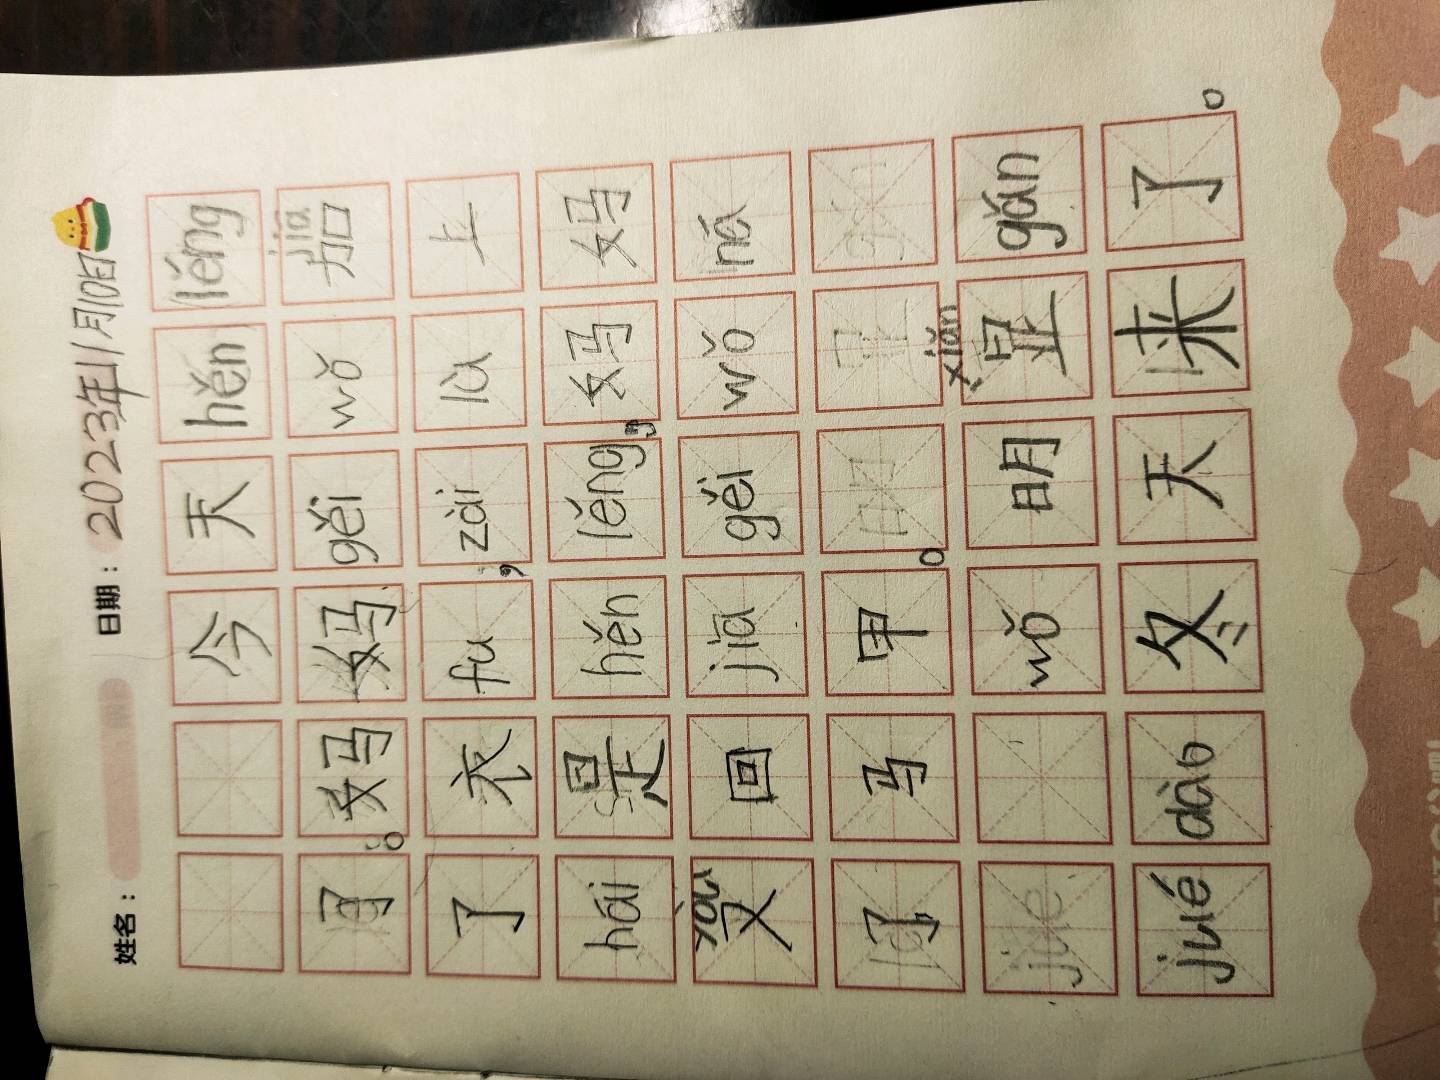 姓名： 日期：2023年11月10日
今天hěn lěng
了。妈妈gěi wǒ jiā加
了衣fu，zài lù上
hái是hěn lěng，妈妈
yòu又回jiā gěi wǒ ná
了马甲。
wǒ明xiǎn显gǎn
jué dào冬天来了。